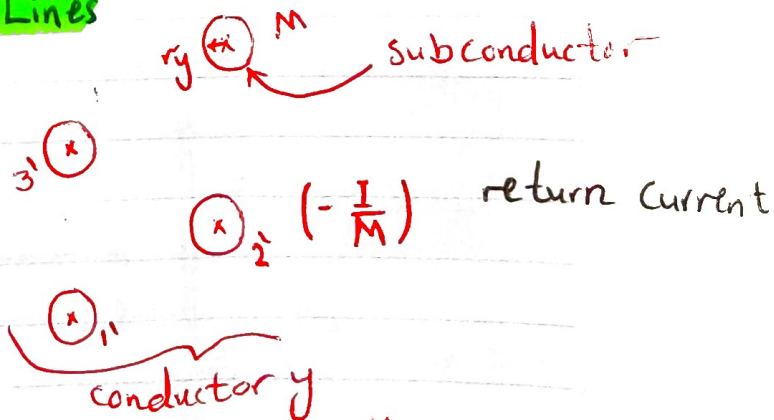 Lines
M
ry
subconductor
3'
(- I/M)
return current
2'
1'
conductor y